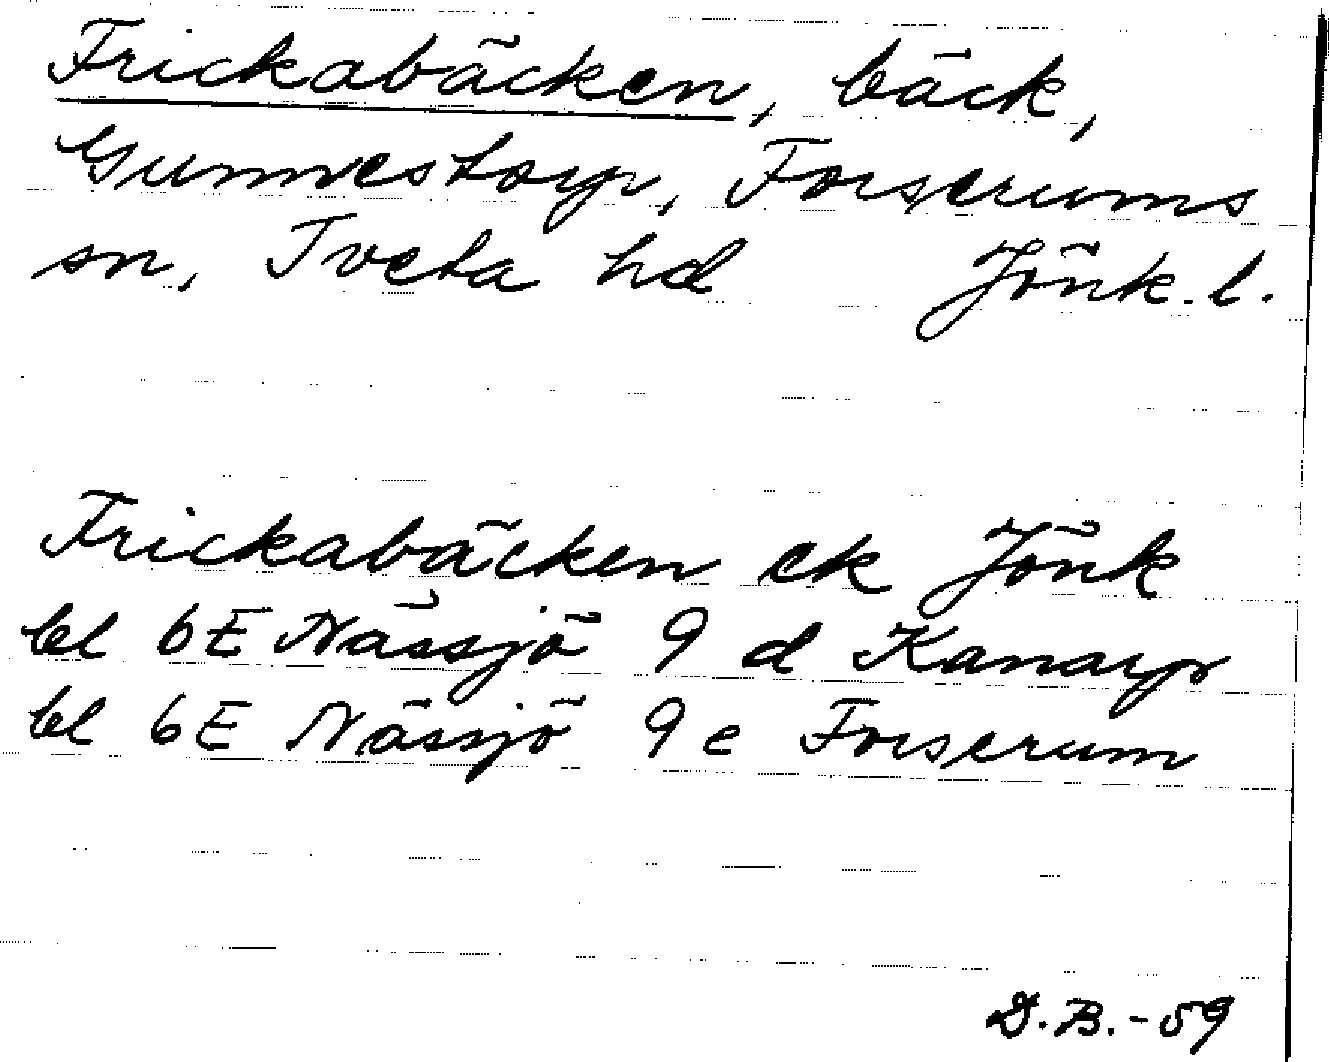 Frickabäcken, bäck,
Gunnestorp, Forserums
sn, Tveta hd Jönk. l.
Frickabäcken ek Jönk
bl 6E Nässjö 9 d Kanarp
bl 6E Nässjö 9 e Forserum
D.B.-59